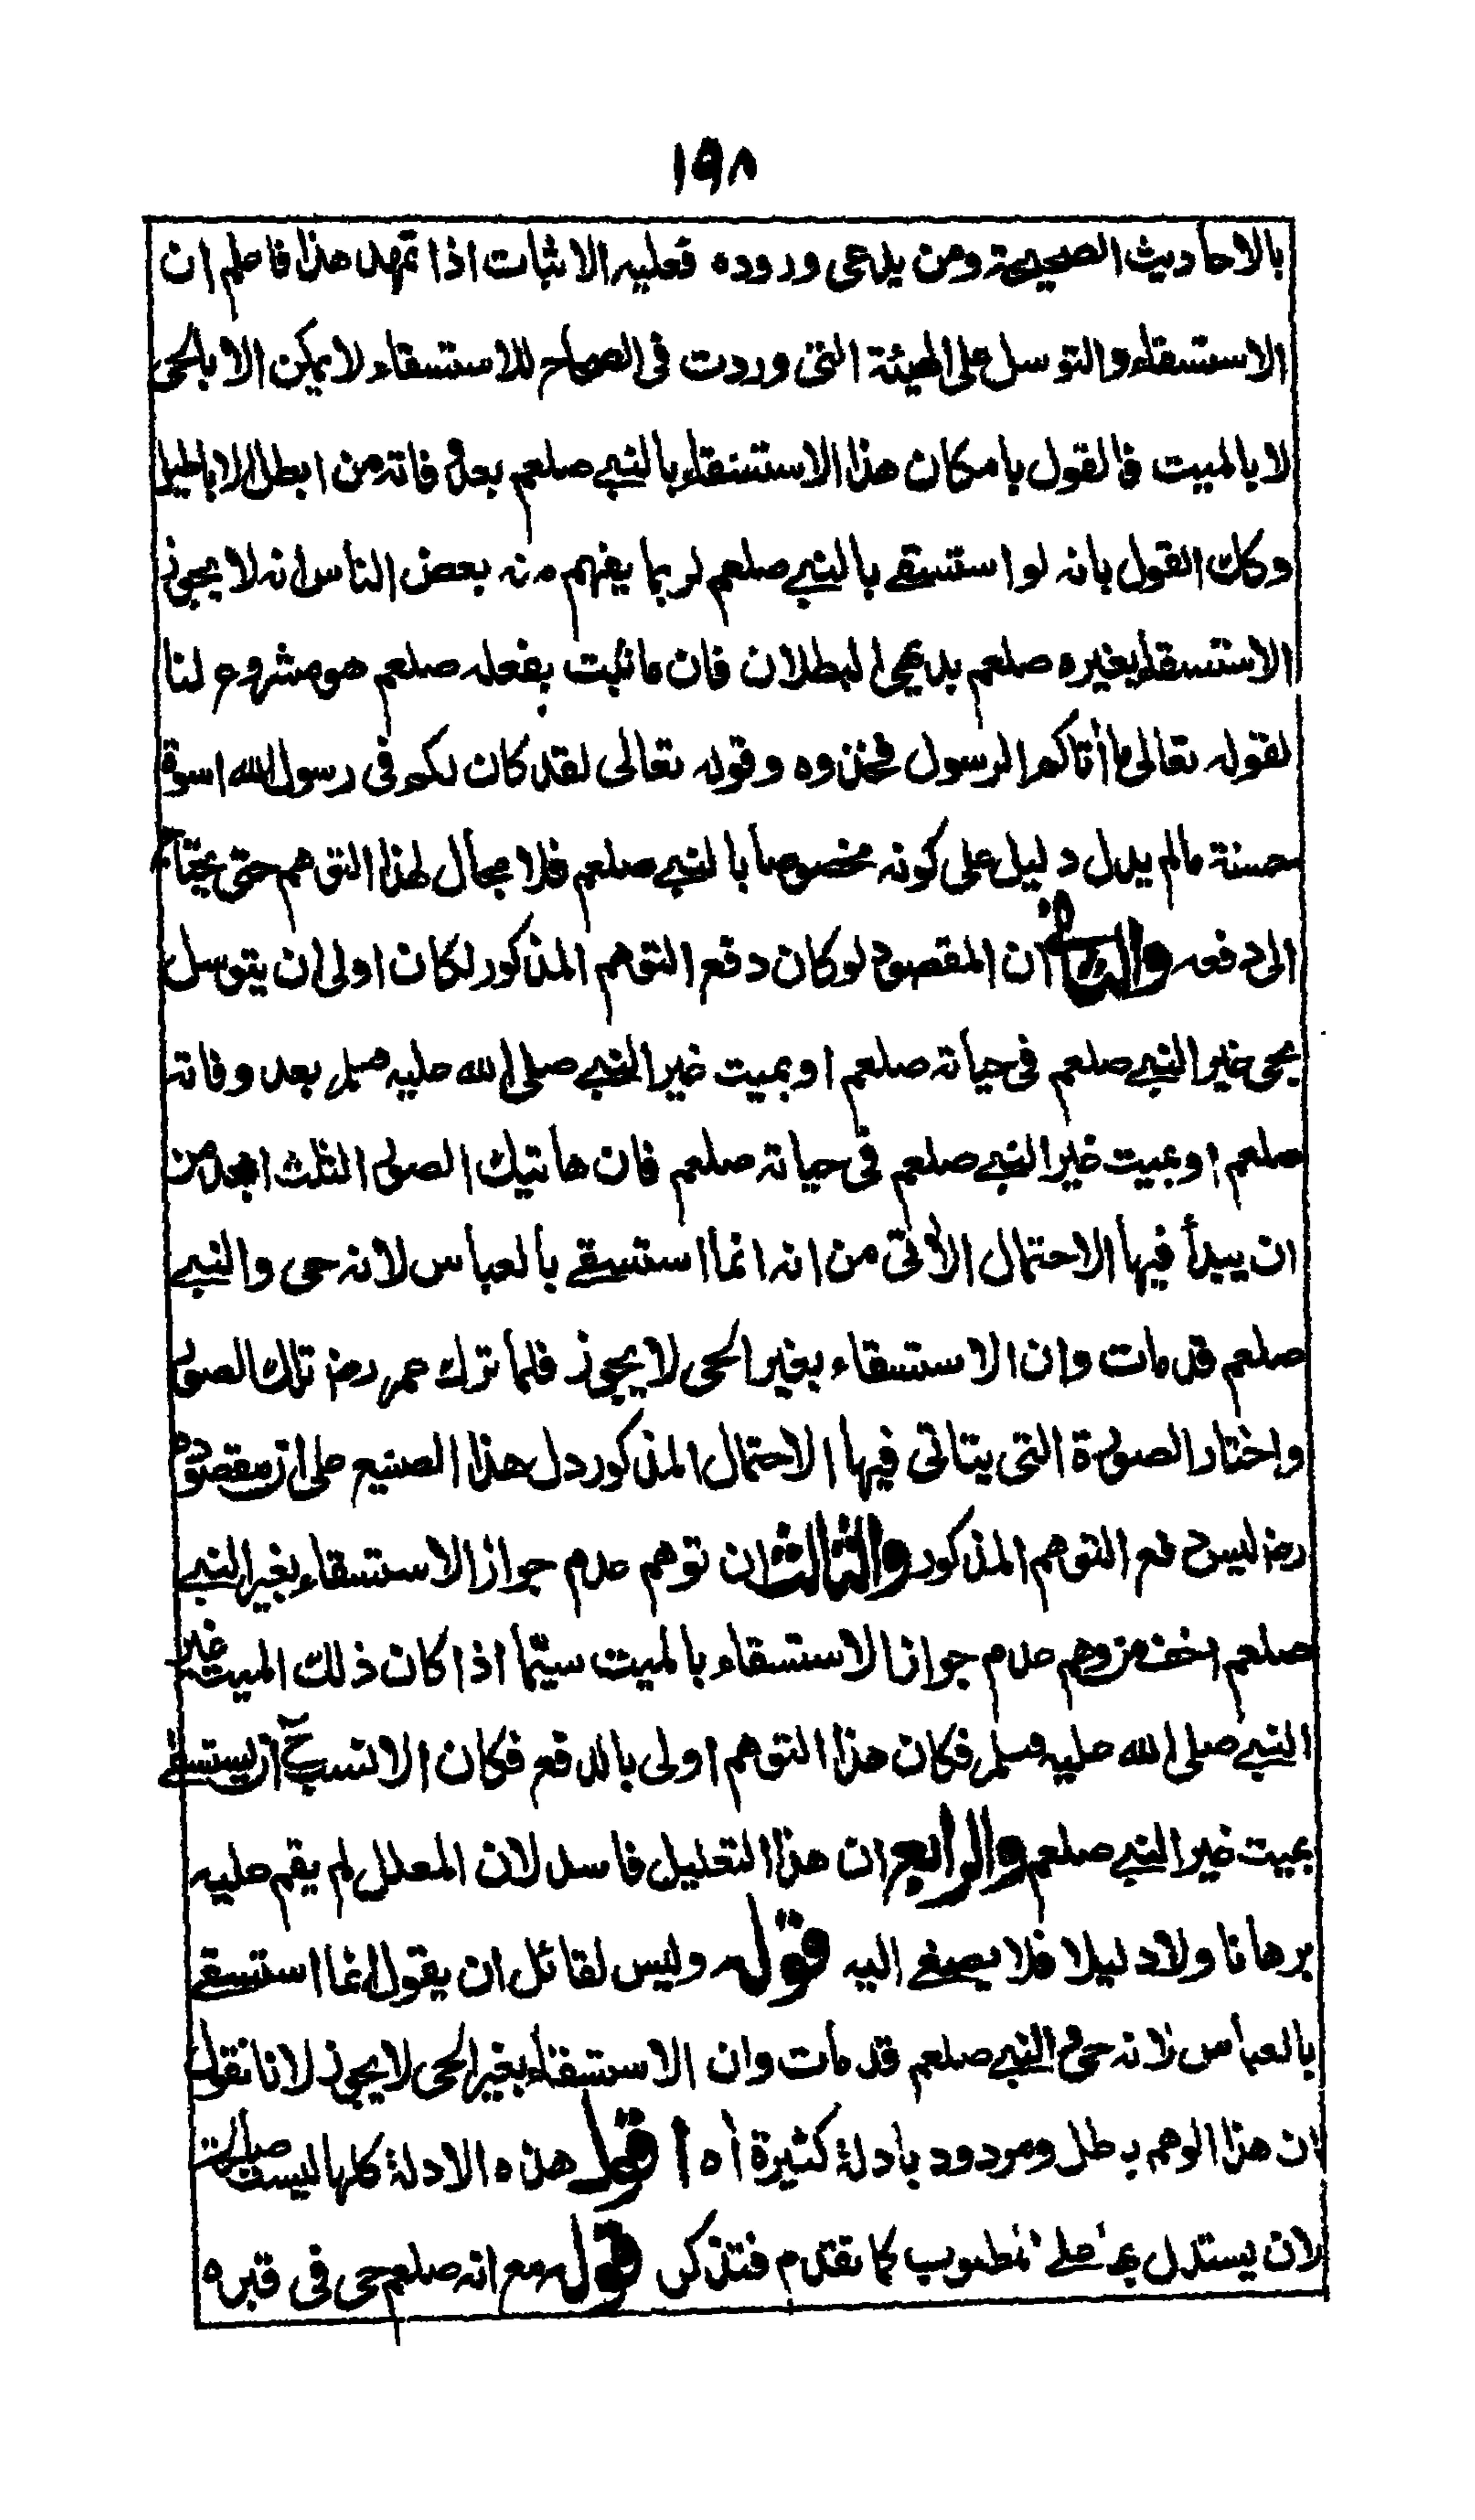 ١٩٨
بالاحاديث الصحيحة ومن يدعى وروده فعليه الاثبات اذا تمهد هذا فاعلم ان
الاستسقاء والتوسل على الهيئة التى وردت فى الصحاح للاستسقاء لا يمكن الا بالحى
لا بالميت فالقول بامكان هذا الاستسقاء بالنبى صلعم بعد وفاته من ابطل الاباطيل
وكذا القول بانه لو استسقى بالنبى صلعم لربما يفهم منه بعض الناس انه لا يجوز
الاستسقاء بغيره صلعم بديهى البطلان فان ما ثبت بفعله صلعم هو مشروع لنا
لقوله تعالى ما اٰتاكم الرسول فخذوه وقوله تعالى لقد كان لكم فى رسول الله اسوة
حسنة مالم يدل دليل على كونه مخصوصا بالنبى صلعم فلا مجال لهذا التوهم حتى يحتاج
الى دفعه والثانى ان المقصود لو كان دفع التوهم المذكور لكان اولى ان يتوسل
بحى غير النبى صلعم فى حياته صلعم او بميت غير النبى صلى الله عليه وسلم بعد وفاته
صلعم او بميت غير النبى صلعم فى حياته صلعم فان هاتيك الصور الثلث ابعد من
ان يبدأ فيها الاحتمال الاٰتى من انه انما استسقى بالعباس لانه حى والنبى
صلعم قد مات وان الاستسقاء بغير الحى لا يجوز فلما ترك عمر رض تلك الصور
واختار الصورة التى يتاتى فيها الاحتمال المذكور دل هذا الصنيع على ان مقصوده
رض ليس دفع التوهم المذكور والثالث ان توهم عدم جواز الاستسقاء بغير النبى
صلعم اخف من وهم عدم جواز الاستسقاء بالميت سيما اذا كان ذلك الميت غير
النبى صلى الله عليه وسلم فكان هذا التوهم اولى بالدفع فكان الانسب ح ان يستسقى
بميت غير النبى صلعم والرابع ان هذا التعليل فاسد لان المعلل لم يقم عليه
برهانا ولا دليلا فلا يصغى اليه قوله وليس لقائل ان يقول انما استسقى
بالعباس لانه حى والنبى صلعم قد مات وان الاستسقاء بغير الحى لا يجوز لانا نقول
ان هذا الوهم باطل ومردود بادلة كثيرة اه اقول هذه الادلة كلها ليست صالحة
لان يستدل بها على المطلوب كما تقدم فتذكر قوله مع انه صلعم حى فى قبره